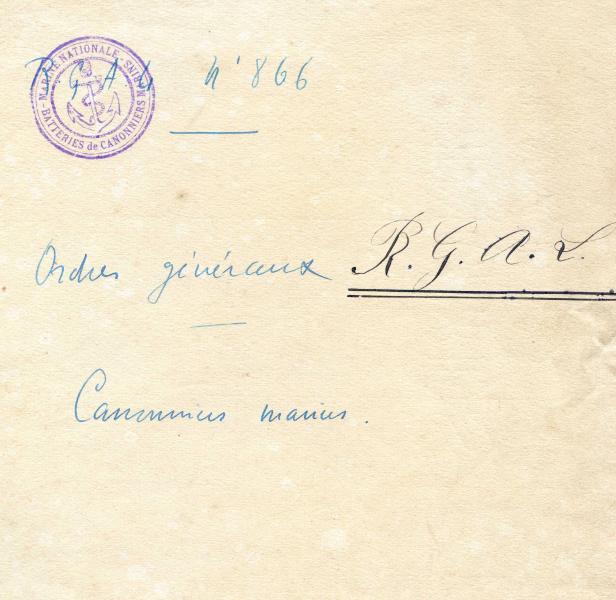 MARINE NATIONALE
BATTERIES de CANONNIERS MARINS
R G A L N° 866
Ordres généraux R. G. A. L.
Canonniers marins.